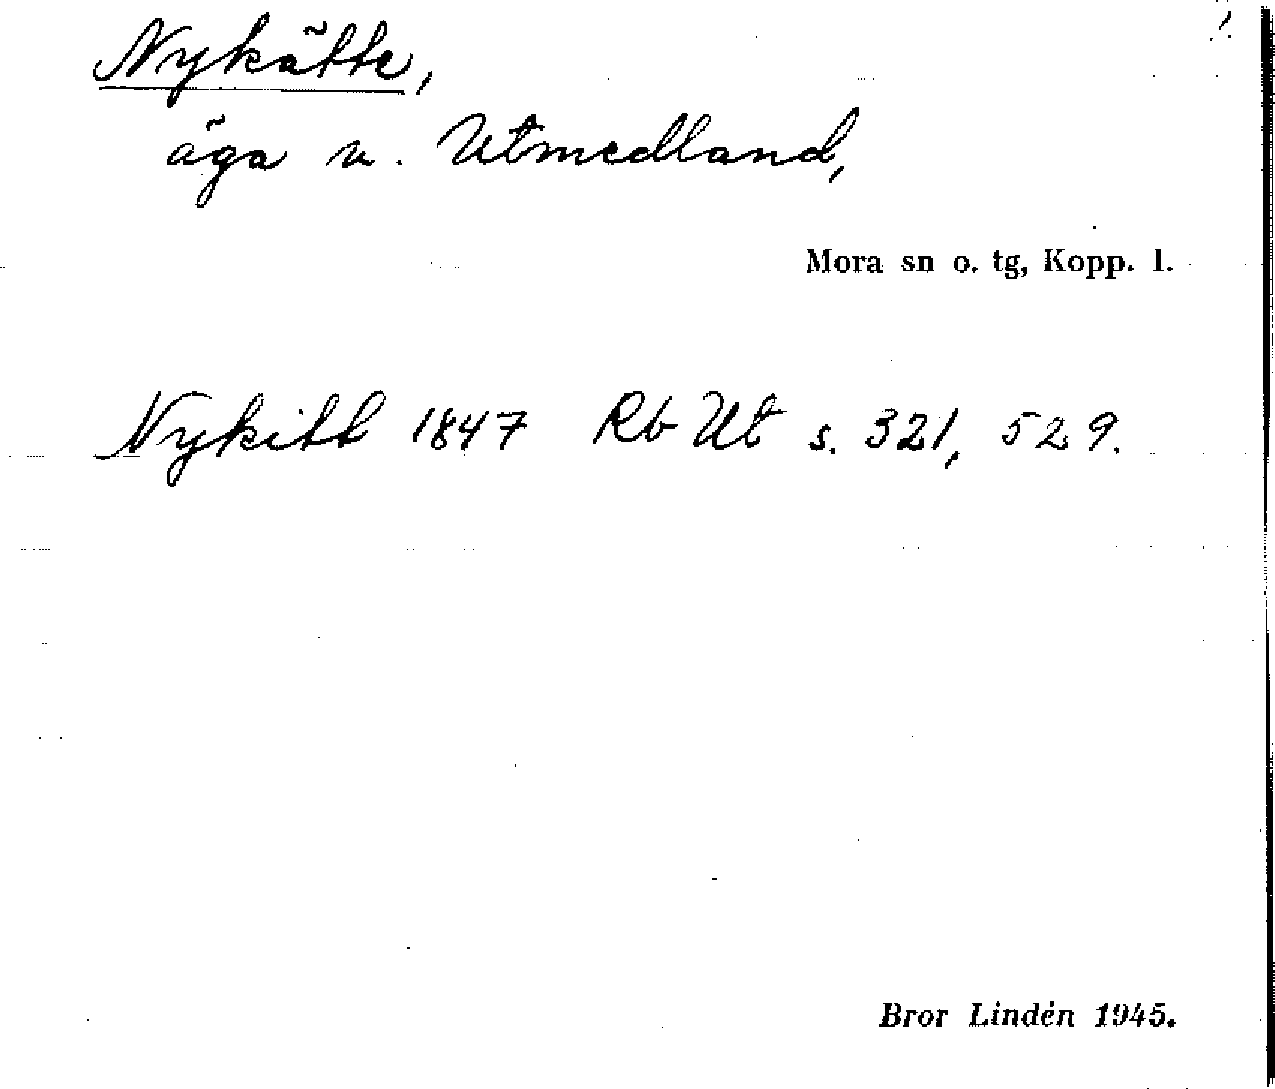 Nykätte,
äga u. Utmedland,
Mora sn o. tg, Kopp. l.
Nykitt 1847 Rb Ut s. 321, 529.
Bror Lindén 1945.